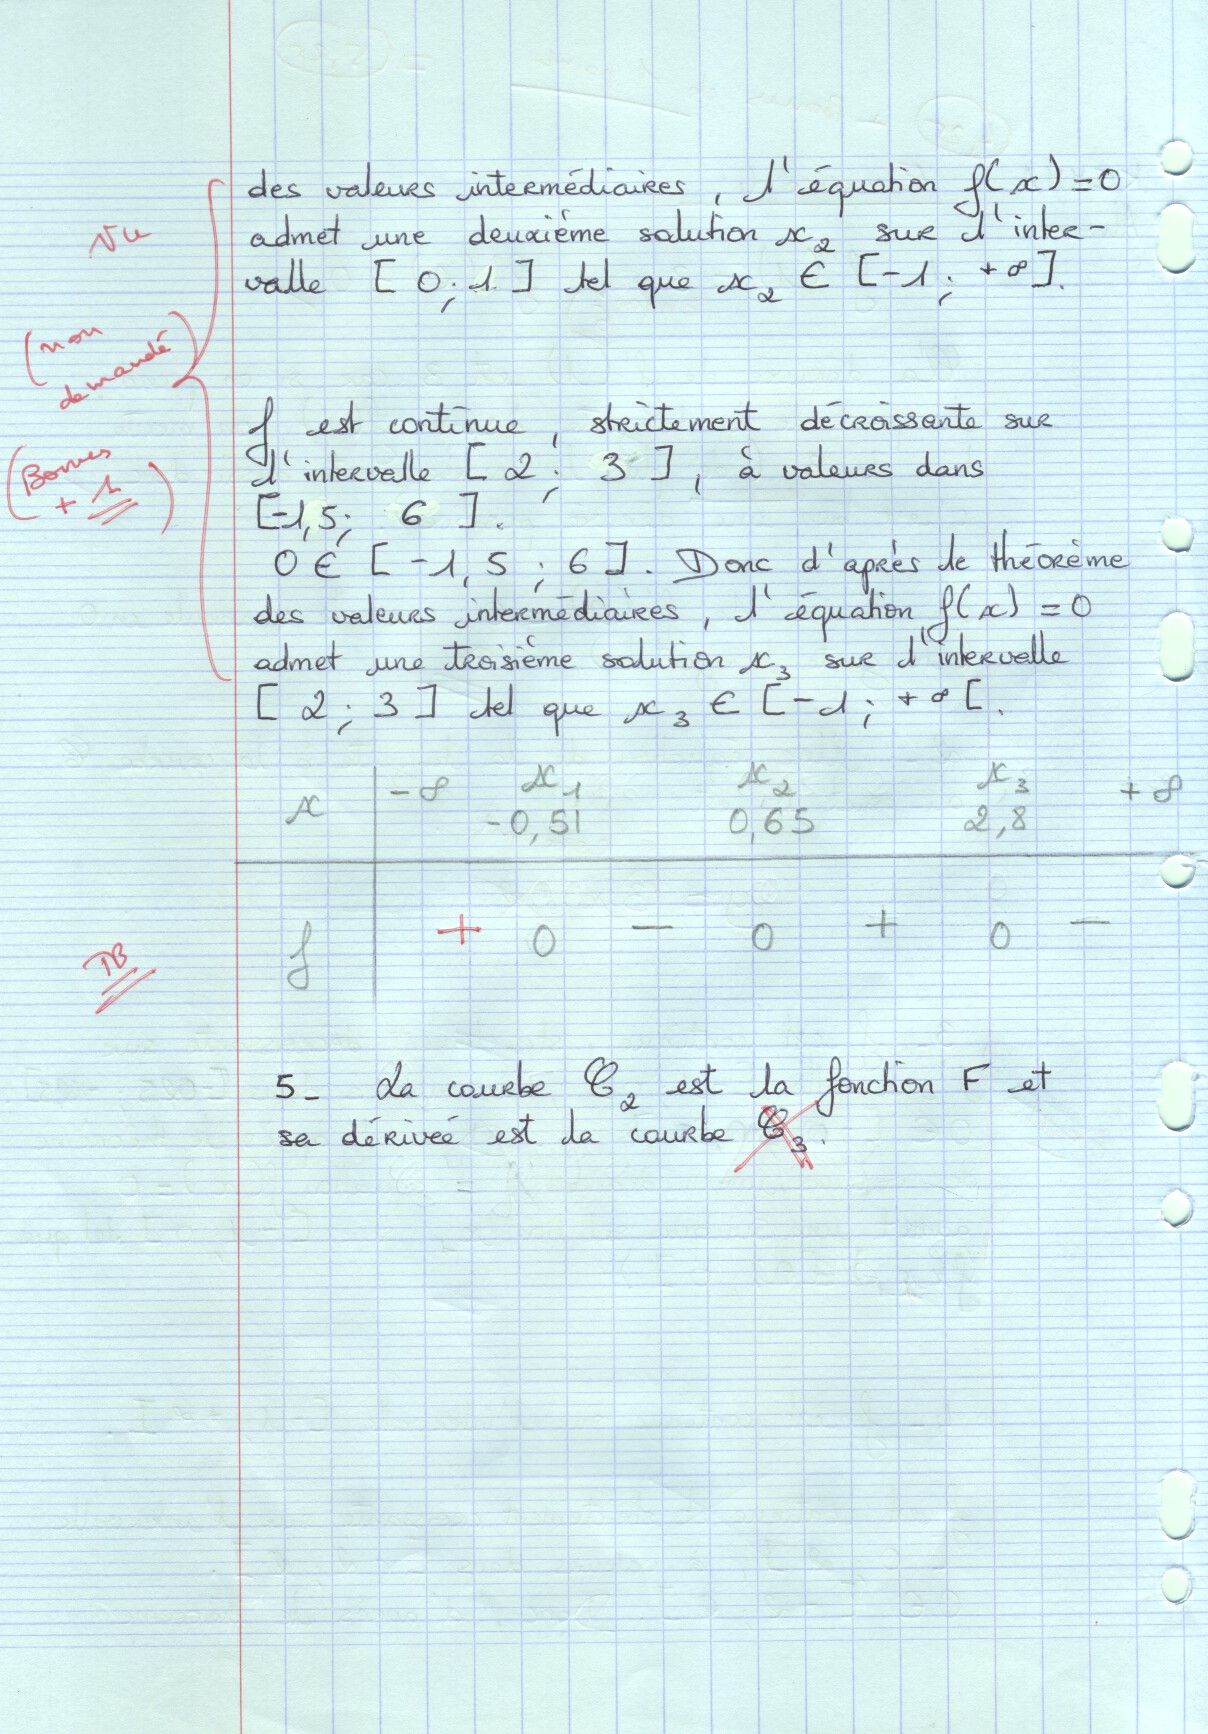 des valeurs intermédiaires, l'équation f(x) = 0
admet une deuxième solution x₂ sur l'inter-
valle [0 ; 1] tel que x₂ ∈ [-1 ; +∞].
Vu
(non
demandé)
(Bonus
+ 1)
f est continue, strictement décroissante sur
l'intervalle [2 ; 3], à valeurs dans
[-1,5 ; 6].
0 ∈ [-1,5 ; 6]. Donc d'après le théorème
des valeurs intermédiaires, l'équation f(x) = 0
admet une troisième solution x₃ sur l'intervalle
[2 ; 3] tel que x₃ ∈ [-1 ; +∞[.
x -∞ x₁ x₂ x₃ +∞
-0,51 0,65 2,8
f + 0 - 0 + 0 -
TB
5- La courbe C₂ est la fonction F et
sa dérivée est la courbe C₃.